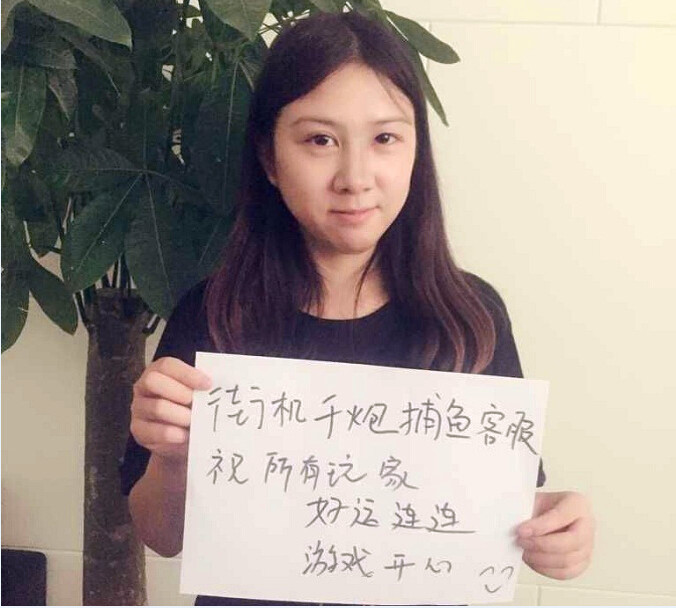 街机千炮捕鱼客服
祝所有玩家
好运连连
游戏开心